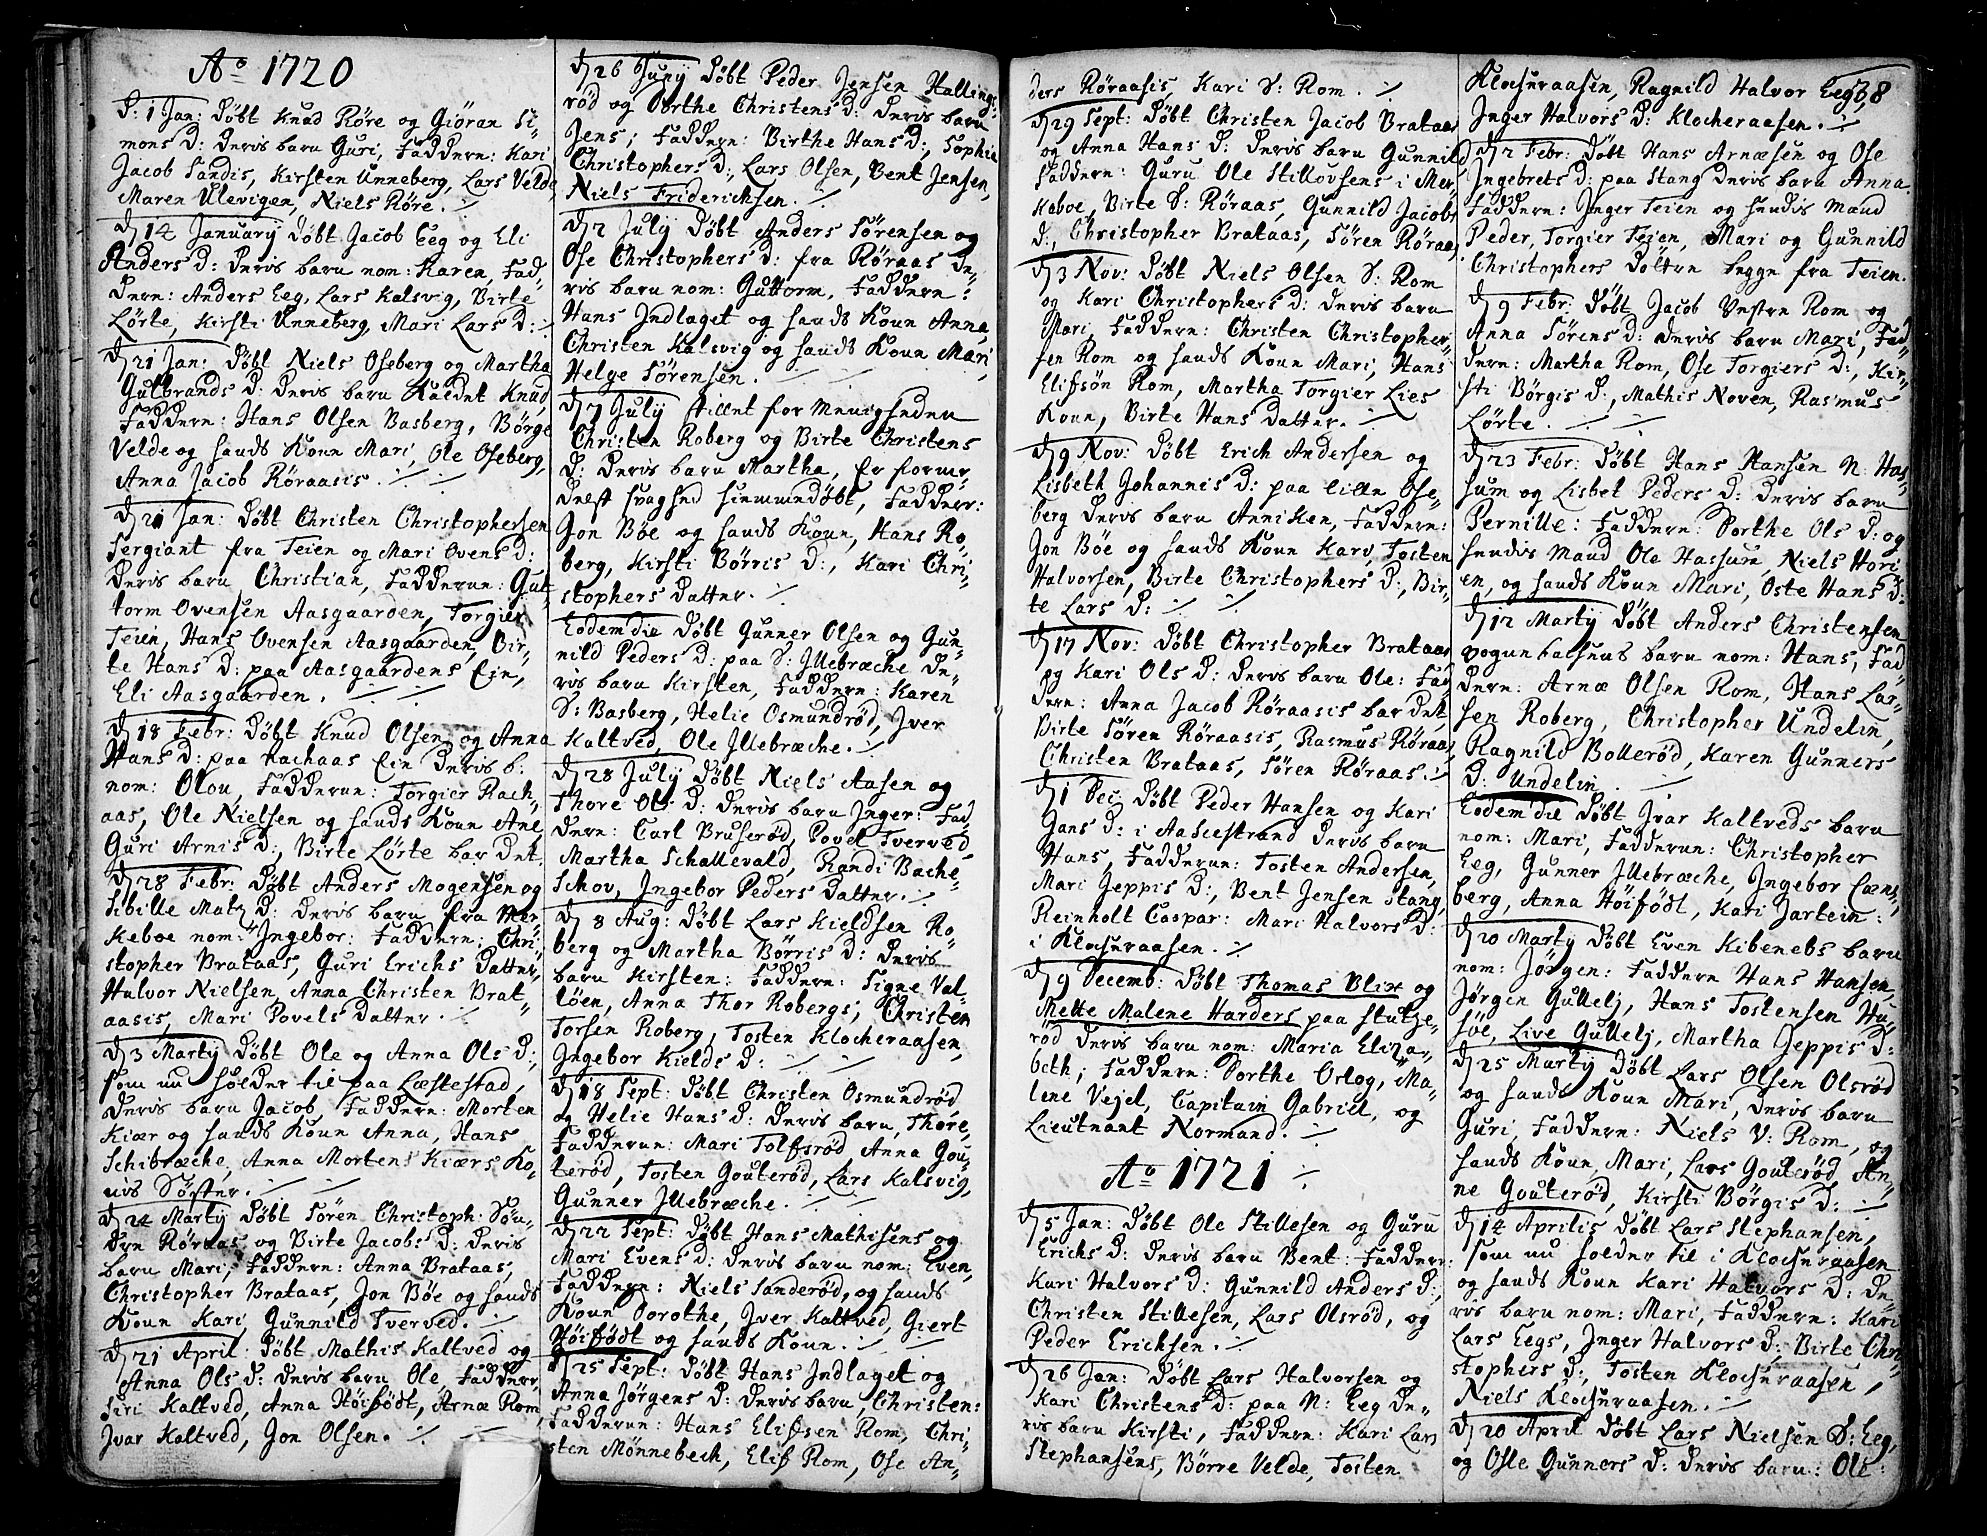 Ao 1720
D: 1 Jan: Døbt Knud Røre og Giöran Si-
mons D: deris barn Guri, Faddern: Kari
Jacob Sandis, Kirsten Unneberg, Lars Velde,
Maren Ulevigen, Niels Röre. ./.
d 14 January Døbt Jacob Eeg og Eli
Anders D: deris barn nom: Karen, Fad-
dern: Anders Eeg, Lars Kalsvig, Birte
Lörte, Kirsti Unneberg, Mari Lars D: ./.
d 21 Jan: Døbt Niels Oseberg og Martha
Gulbrands D: deris barn Kaldet Knud,
Faddern: Hans Olsen Basberg, Börge
Velde og hands Kone Mari, Ole Oseberg,
Anna Jacob Röraasis. ./. ./.
d 21 Jan: Døbt Christen Christophersen
Sergiant fra Teien og Mari Ovens D:
deris barn Christian, Fadderne: Gut-
torm Ovensen Aasgaarden, Torgier
Teien, Hans Ovensen Aasgaarden, Bir-
te Hans D: paa Aasgaardens Eie,
Eli Aasgaarden. ./. ./.
d 18 Febr: Døbt Knud Olsen og Anna
Hans D: paa Rachaas Eie deris b:
nom: Olou, Fadderne: Torgier Rach-
aas, Ole Nielsen og hands Kone Ane
Guri Arnis D:, Birte Lörte bar det.
d 28 Febr: Døbt Anders Mogensen og
Sibille Matz D: deris barn fra Mer-
keboe nom: Ingebor: Faddern: Chri-
stopher Brataas, Guri Erichs Datter,
Halvor Nielsen, Anna Christen Brat-
aasis, Mari Povels Datter. ./.
d 3 Marty Døbt Ole og Anna Ols D:,
som nu holder til paa Læstestad,
deris barn Jacob, Faddern: Morten
Kiær og hands Kone Anna, Hans
Schibræche, Anna Mortens Kiærs Ko-
nis Söster. ./. ./.
d 24 Marty Døbt Sören Christoph: Sön-
dre Röraas og Birte Jacobs D: deris
barn Mari, Faddern: Anna Brataas,
Christopher Brataas, Jon Böe og hands
Kone Kari, Gunnild Tverved. ./.
d 21 April: Døbt Mathis Kaltved og
Anna Ols D: deris barn Ole, Fadder:
Siri Kaltved, Anna Höifödt, Arnæ Rom,
Ivar Kaltved, Jon Olsen. ./. ./.
d 26 Juny Døbt Peder Jensen Hallings-
röd og Dorthe Christens D: deris barn
Jens; Faddern: Birthe Hans D:, Sophie
Christophers D:, Lars Olsen, Bent Jensen,
Niels Friderichsen. ./.
d 2 July Døbt Anders Sörensen og
Ose Christophers D: fra Röraas de-
ris barn nom: Guttorm, Faddern:
Hans Indlaget og hands Kone Anna,
Christen Kalsvig og hands Kone Mari,
Helge Sörensen. ./. ./.
d 7 July stillet for Menigheden
Christen Roberg og Birte Christens
D: deris barn Martha, Er former-
delst svaghed hiemmedøbt, Faddere:
Jon Böe og hands Kone, Hans Ro-
berg, Kirsti Börris D:, Kari Chri-
stophers Datter. ./.
Eodem die Døbt Gunner Olsen og Gun-
nild Peders D: paa S: Illebræche de-
ris barn Kirsten, Faddern: Karen
S: Basberg, Helie Osmundröd, Iver
Kaltved, Ole Illebræche. ./.
d 28 July Døbt Niels Aasen og
Thore Ols D: deris barn Inger: Fad-
dern: Carl Bruseröd, Povel Tverved,
Martha Schallevald, Randi Bache-
Schov, Ingebor Peders Datter. ./.
d 8 Aug: Døbt Lars Kieldsen Ro-
berg og Martha Börris D: deris
barn Kirsten: Faddern: Signe Val-
löen, Anna Thor Robergs; Christen
Torsen Roberg, Tosten Klocheraasen,
Ingebor Kields D: ./. ./.
d 18 Sept: Døbt Christen Osmundröd
og Helie Hans D: deris barn, Thore,
Fadderne: Mari Tolfsröd, Anna Gou-
teröd, Tosten Gouteröd, Lars Kalsvig,
Gunner Illebræche. ./. ./.
d 22 Sept: Døbt Hans Mathisens og
Mari Evens D: deris barn nom: Even,
Faddern: Niels Sanderöd, og hands
Kone Dorothe, Iver Kaltved, Giert
Höifödt og hands Kone. ./. ./.
d 25 Sept: Døbt Hans Indlaget og
Anna Jörgens D: deris barn, Christen:
Fadderne: Hans Elifsen Rom, Chri-
sten Mönnebech, Elif Rom, Ose An-
ders Röraasis, Kari S: Rom. ./.
d 29 Sept: Døbt Christen Jacob Brataas
og Anna Hans D: deris barn Gunnild
Faddern: Guru Ole Stillovsens i Mer-
keboe, Birte S: Röraas, Gunnild Jacobs
D:, Christopher Brataas, Sören Röraas,
d 3 Nov: Døbt Niels Olsen S: Rom
og Kari Christophers D: deris barn
Mari, Faddern: Christen Christopher-
sen Rom og hands Kone Mari, Hans
Elifsön Rom, Martha Torgier Lies
Kone, Birte Hans Datter. ./.
d 9 Nov: Døbt Erich Andersen og
Lisbeth Johannis D: paa lille Ose-
berg deris barn Anniken, Faddern:
Jon Böe og hands Kone Kari, Tosten
Halvorsen, Birte Christophers D:, Bir-
te Lars D: ./. ./.
d 17 Nov: Døbt Christopher Brataas
og Kari Ols D: deris barn Ole: Fad-
dern: Anna Jacob Röraasis bar det,
Birte Sören Röraasis, Rasmus Röraas,
Christen Brataas, Sören Röraas. ./.
d 1 Dec: Døbt Peder Hansen og Kari
Jans D: i Aasestrand deris barn
Hans, Fadderne: Tosten Andersen,
Mari Jeppis D:, Bent Jensen Stang,
Reinholt Caspar: Mari Halvors D:
i Klocheraasen. ./.
d 9 Decemb: Døbt Thomas Blix og
Mette Malene Harders paa Stutze-
röd deris barn nom: Maria Eliza-
beth; Faddern: Dorthe Oslog, Ma-
lene Vejel, Capitain Gabriel, og
Lieutnant Normand. ./.
Ao 1721 ./.
d 5 Jan: Døbt Ole Stillesen og Guru
Erichs D: deris barn Bent: Faddern:
Kari Halvors D: Gunnild Anders D:,
Christen Stillesen, Lars Olsröd, og
Peder Erichsen. ./.
d 26 Jan: Døbt Lars Halvorsen og
Kari Christens D: paa N: Eeg de-
ris barn Kirsti, Faddern: Kari Lars
Stephansens, Börre Velde, Tosten
38
Klocheraasen, Ragnild Halvor Eegs,
Inger Halvors D: Klocheraasen. ./.
d 2 Febr: Døbt Hans Arnæsen og Ose
Ingebrets D: paa Stang deris barn Anna
Faddern: Inger Teien og hendis Mand
Peder, Torgier Teien, Mari og Gunnild
Christophers Döttre begge fra Teien.
d 9 Febr: Døbt Jacob Vestre Rom og
Anna Sörens D: deris barn Mari, Fad-
dern: Martha Rom, Ose Torgiers D:, Kir-
sti Börgis D:, Mathis Noven, Rasmus
Lörte. ./. ./.
d 23 Febr: Døbt Hans Hansen N: Has-
sum og Lisbet Peders D: deris barn
Pernille: Faddern: Dorthe Ols D: og
hendis Mand Ole Hassum, Niels Hori-
en, og hands Kone Mari, Oste Hans D:
d 12 Marty Døbt Anders Christensen
barn nom: Hans, Fad-
dern: Arnæ Olsen Rom, Hans Lar-
sen Roberg, Christopher Undelin,
Ragnild Bolleröd, Karen Gunners
D: Undelin. ./.
Eodem die Døbt Ivar Kaltveds barn
nom: Mari, Fadderne: Christopher
Eeg, Gunner Illebræche, Ingebor Læns-
berg, Anna Höifödt, Kari Jartein:
d 20 Marty Døbt Even Kibenebs barn
nom: Jörgen: Faddern Hans Hansen,
Jörgen Gullelj, Hans Tostensen Hu-
söe, Live Gullelj, Martha Jeppis D:
d 25 Marty Døbt Lars Olsen Olsröd
og hands Kone Mari, deris barn
Guri, Faddern: Niels V: Rom, og
hands Kone, Mari, Lars Gouteröd, An-
ne Gouteröd, Kirsti Börgis D: ./.
d 14 Aprilis Døbt Lars Stephansen,
som nu holder til i Klocheraasen
og hands Kone Kari Halvors D: de-
ris barn nom: Mari, Faddern: Kari
Lars Eegs, Inger Halvors D:, Birte Chri-
stophers D:, Tosten Klocheraasen,
Niels Klocheraasen. ./.
d 20 April Døbt Lars Nielsen S: Eeg,
og Osle Gunners D: deris barn: Ole: